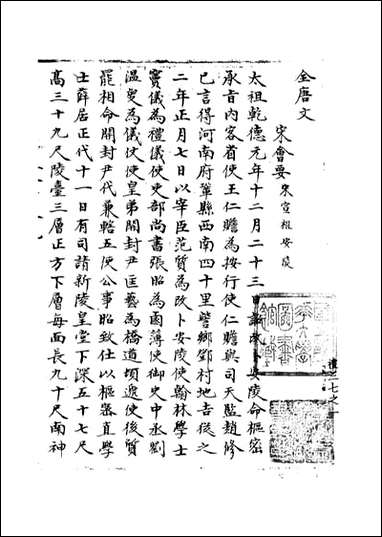 全唐文
宋會要 宋宣祖安陵
太祖乾德元年十二月二十三日詔改卜安陵命樞密
承旨內客省使王仁贍為按行使仁贍與司天監趙修
已言得河南府鞏縣西南四十里訾鄉鄧村地吉從之
二年正月七日以宰臣范質為改卜安陵使翰林學士
竇儀為禮儀使吏部尚書張昭為鹵簿使御史中丞劉
溫叟為儀仗使皇弟開封尹匡義為橋道頓遞使後質
罷相命開封尹代兼轄五使公事昭致仕以樞密直學
士薛居正代十一日有司請新陵皇堂下深五十七尺
高三十九尺陵臺三層正方下層每面長九十尺南神
禮三七之一